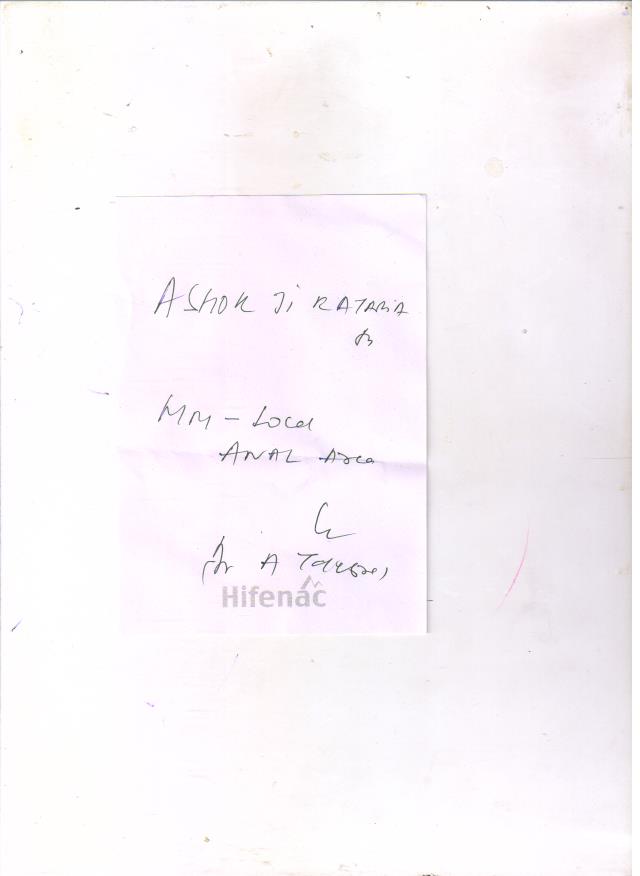 ASHOK Ji KATARIA
MM - Local
ANAL Area
Dr A
Hifenac